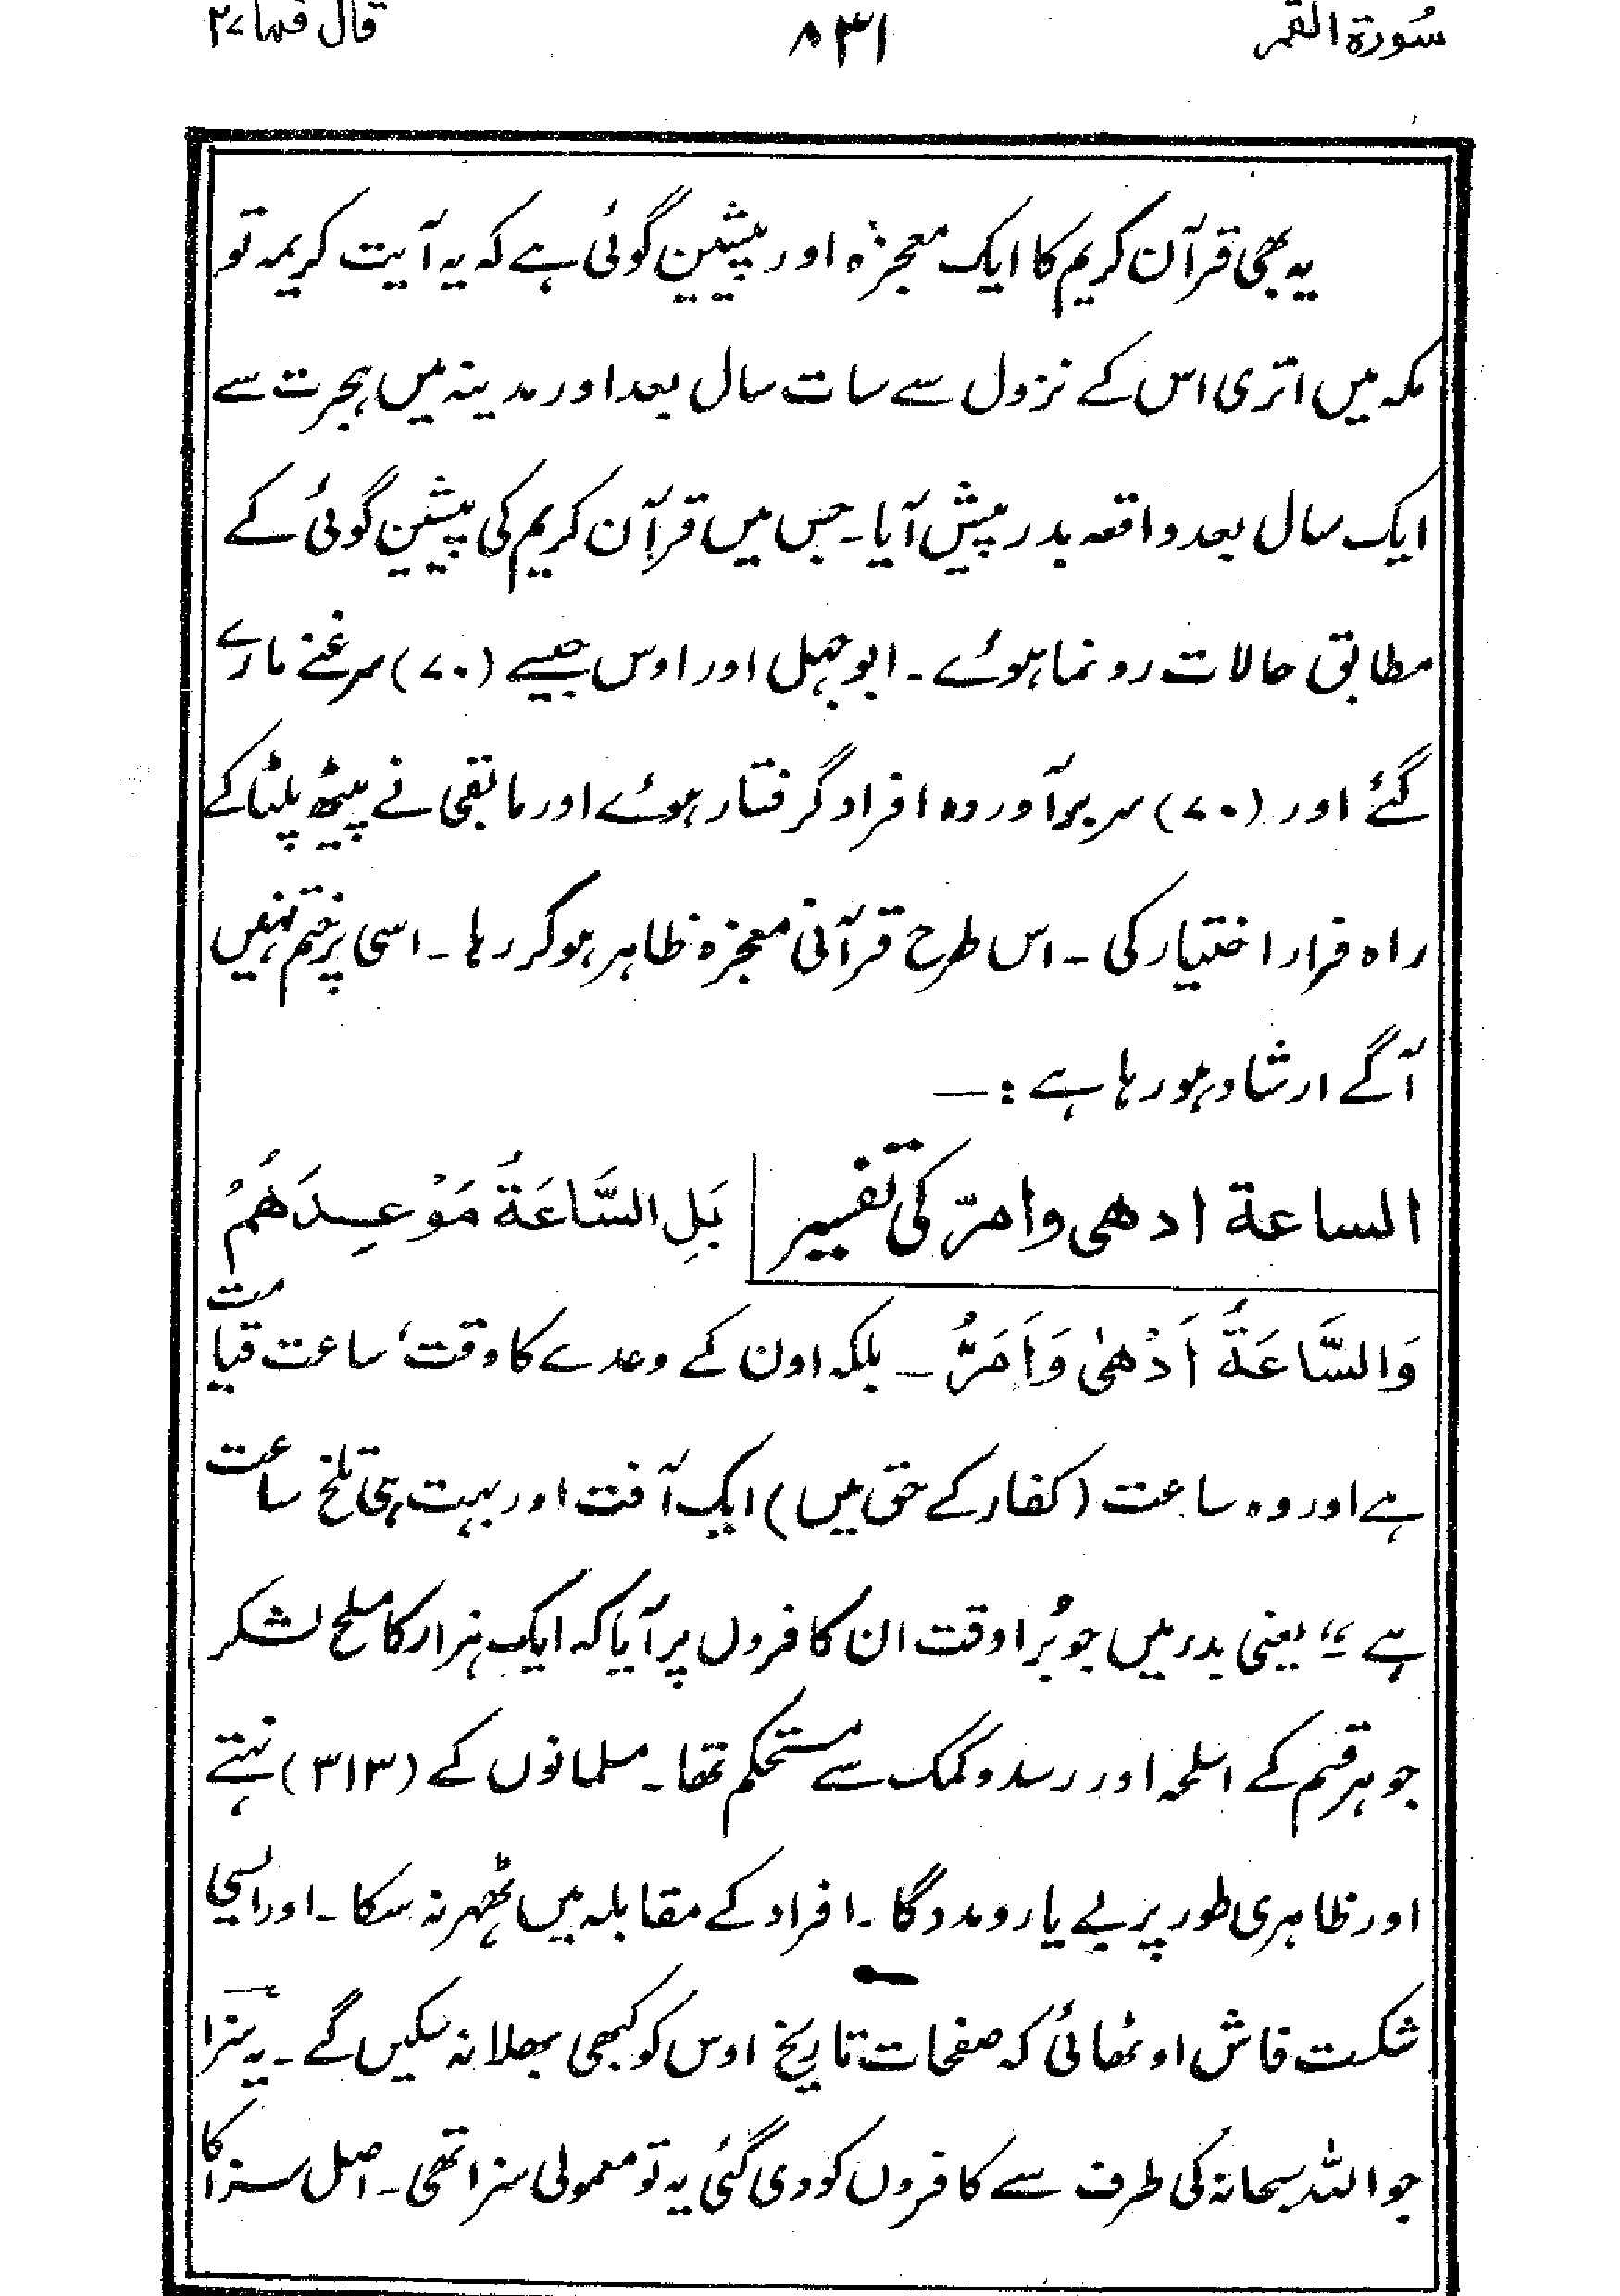 سُورة القمر ۸۳۱ قال فما ۲۷
یہ بھی قرآن کریم کا ایک معجزہ اور پیشین گوئی ہے کہ یہ آیت کریمہ تو
مکہ میں اتری اس کے نزول سے سات سال بعد اور مدینہ میں ہجرت سے
ایک سال بعد واقعہ بدر پیش آیا۔ جس میں قرآن کریم کی پیشین گوئی کے
مطابق حالات رونما ہوئے۔ ابوجہل اور اوس جیسے (۷۰) سرغنے مارے
گئے اور (۷۰) سربرآوردہ افراد گرفتار ہوئے اور مابقی نے پیٹھ پلٹا کے
راہ فرار اختیار کی۔ اس طرح قرآنی معجزہ ظاہر ہوکر رہا۔ اسی پر ختم نہیں
آگے ارشاد ہورہا ہے :—
الساعة ادھی وامرّ کی تفسیر بَلِ السَّاعَةُ مَوْعِدُهُمْ
وَالسَّاعَةُ اَدْهٰى وَاَمَرُّ۔ بلکہ اون کے وعدے کا وقت، ساعت قیامت
ہے اور وہ ساعت (کفار کے حق میں) ایک آفت اور بہت ہی تلخ ساعت
ہے؛؛ یعنی بدر میں جو بُرا وقت ان کافروں پر آیا کہ ایک ہزار کا مسلح لشکر
جو ہر قسم کے اسلحہ اور رسد و کمک سے مستحکم تھا۔ مسلمانوں کے (۳۱۳) نہتے
اور ظاہری طور پر بے یار و مددگا۔ افراد کے مقابلہ میں ٹھہر نہ سکا۔ اور ایسی
شکست فاش اوٹھائی کہ صفحات تاریخ اوس کو کبھی بھلا نہ سکیں گے۔ یہ سزا
جو اللہ سبحانہ کی طرف سے کافروں کو دی گئی یہ تو معمولی سزا تھی۔ اصل سزا کا